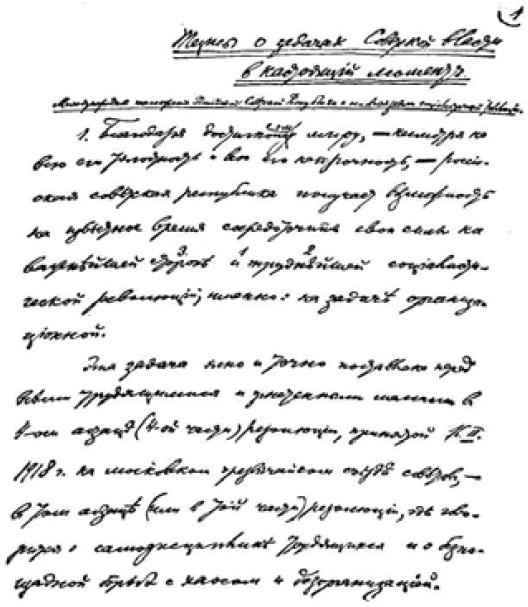 1
Тезисы о задачах Советской власти
в настоящий момент.
Международное положение Российской Советской Республики и основная задача социалистической революции.
1. Благодаря достигнутому миру, — несмотря на
всю его тягостность и всю его непрочность, — россий-
ская советская республика получает возможность
на известное время сосредоточить свои силы на
важнейшей 3 стороне 1 и 2 труднейшей социалисти-
ческой революции, именно: на задаче организа-
ционной.
Эта задача ясно и точно поставлена перед
всеми трудящимися и угнетенными массами в
4-ом абзаце (4-ой части) резолюции, принятой 15.III.
1918 г. на московском чрезвычайном съезде советов, —
в том абзаце (или в той части) резолюции, где гово-
рится о самодисциплине трудящихся и о беспо-
щадной борьбе с хаосом и дезорганизацией.